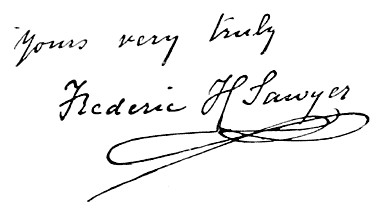 Yours very truly
Frederic H Sawyer